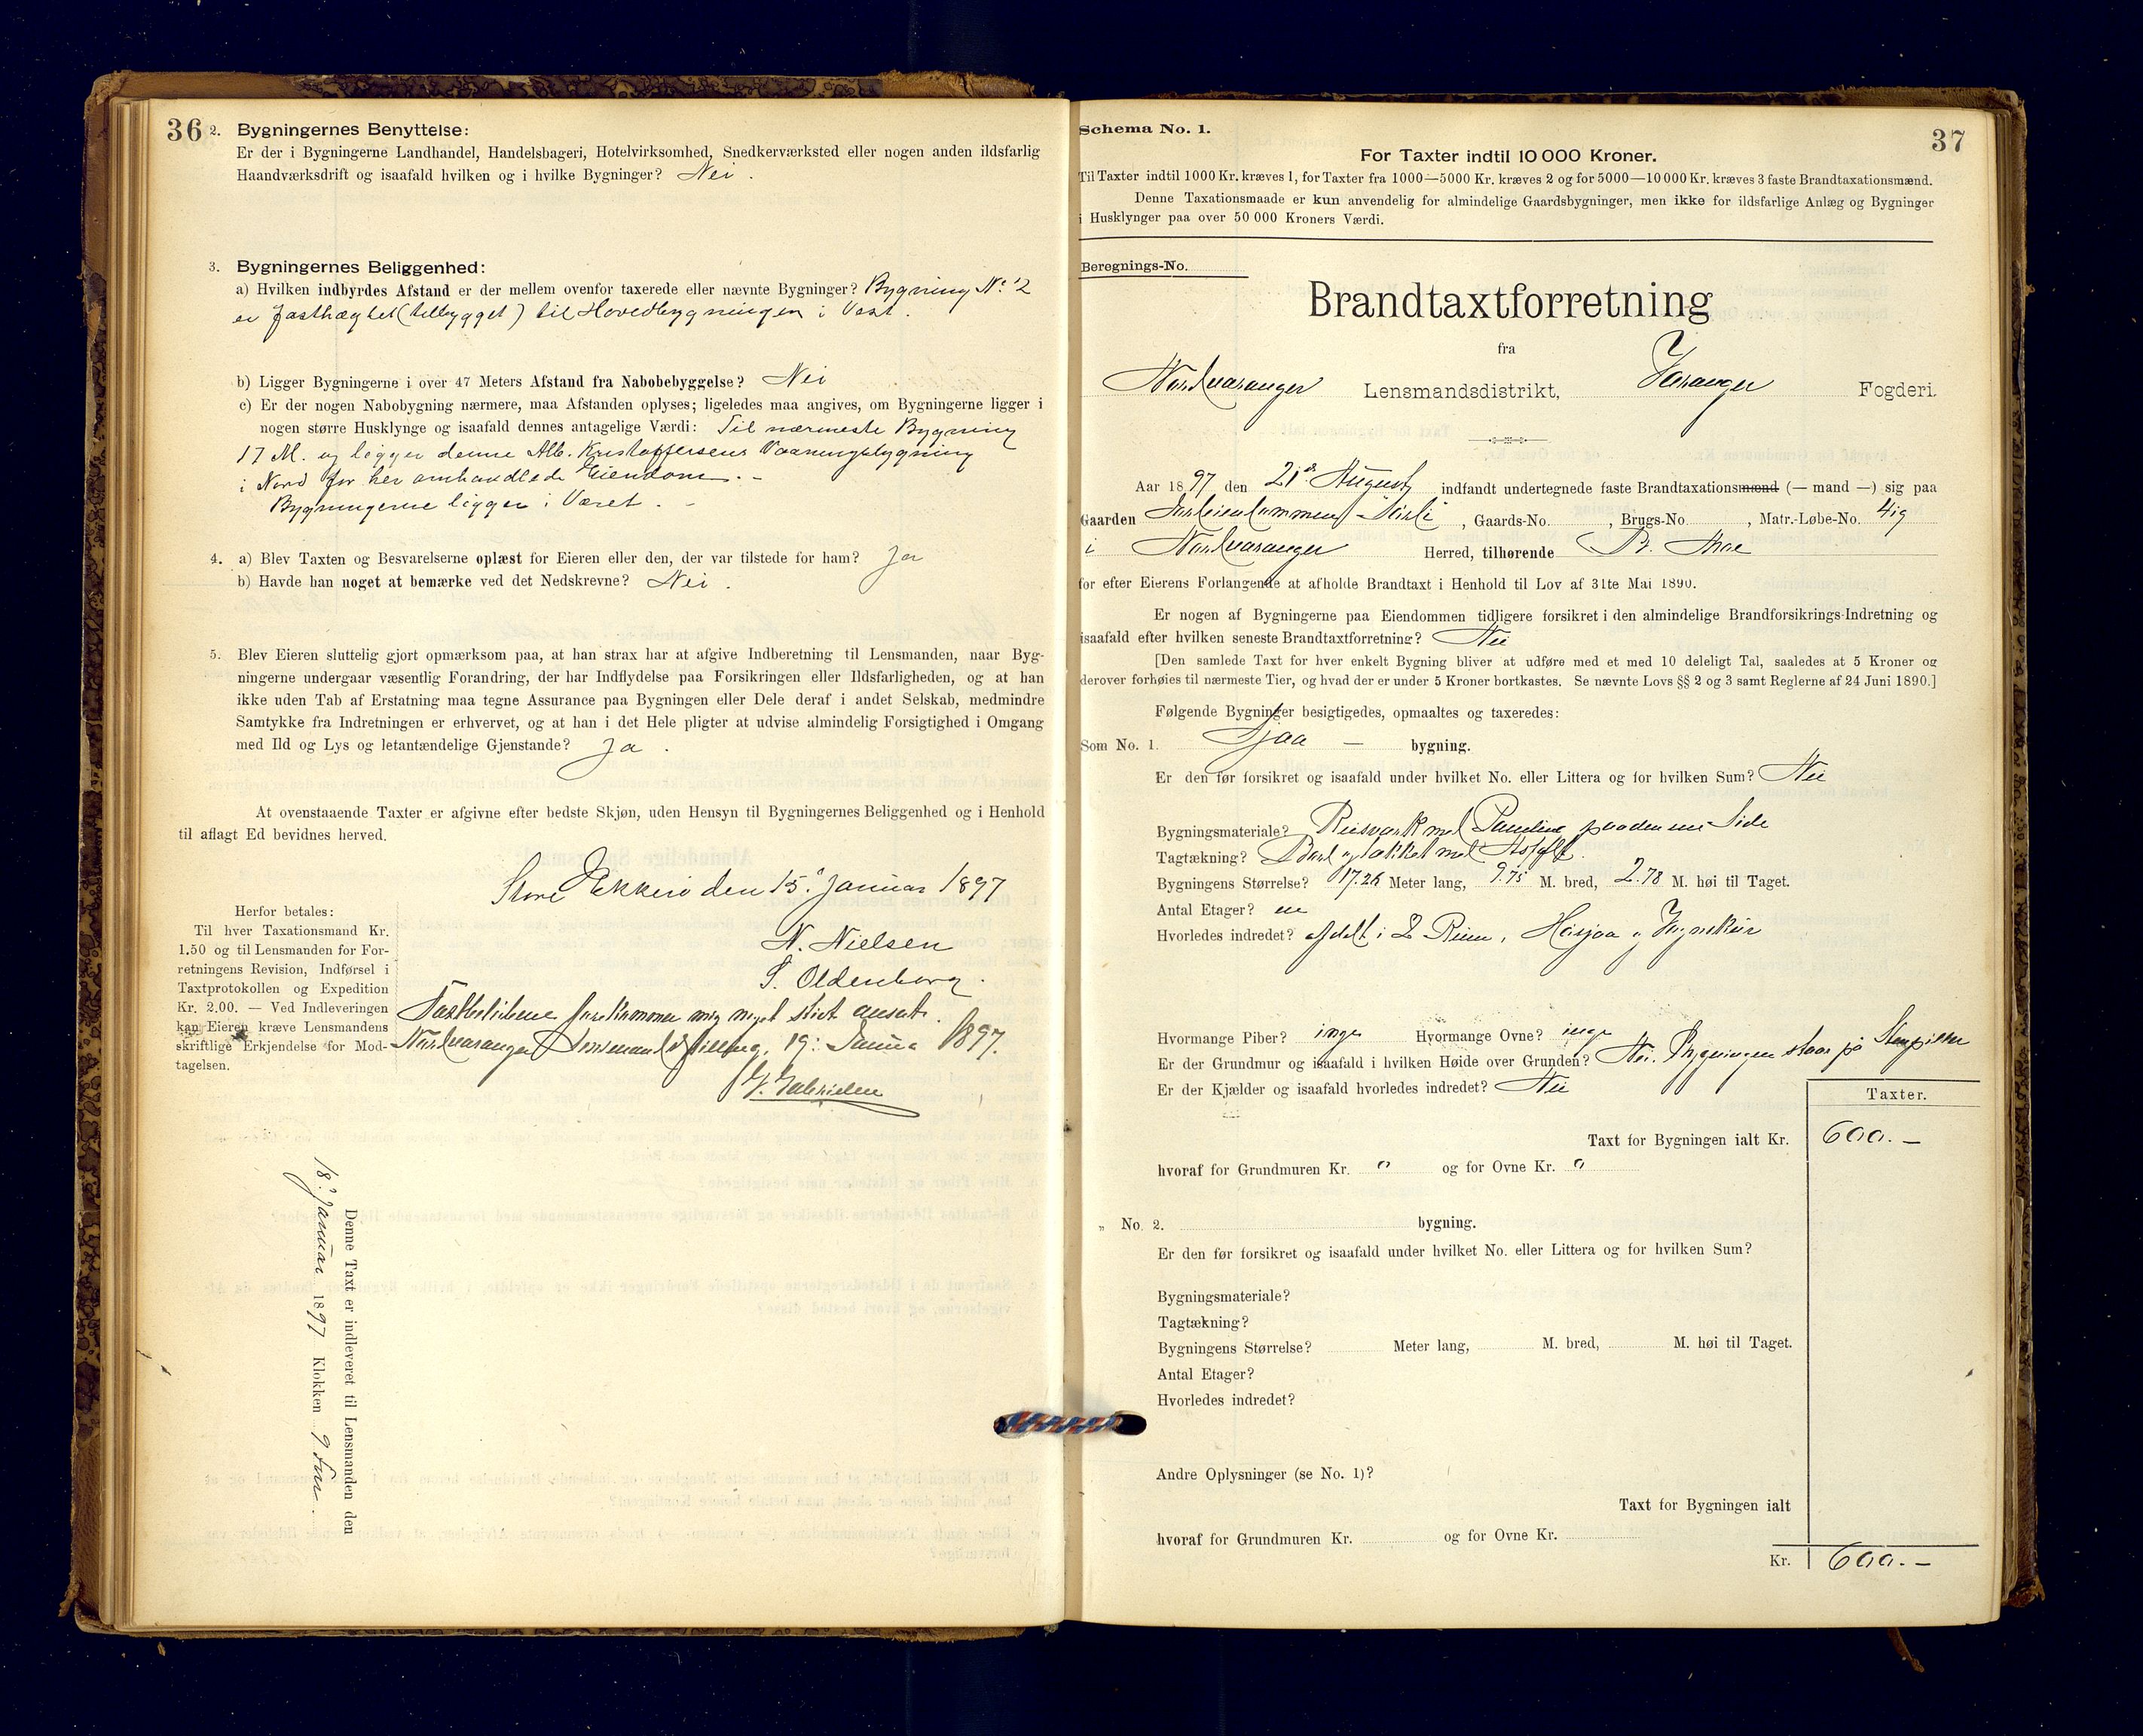 36
2. Bygningernes Benyttelse:
Er der i Bygningerne Landhandel, Handelsbageri, Hotelvirksomhed, Snedkerværksted eller nogen anden ildsfarlig
Haandværksdrift og isaafald hvilken og i hvilke Bygninger? Nei.
3. Bygningernes Beliggenhed:
a) Hvilken indbyrdes Afstand er der mellem ovenfor taxerede eller nævnte Bygninger? Bygning No. 2
er fasthægtet (tilbygget) til Hovedbygningen i Vest.
b) Ligger Bygningerne i over 47 Meters Afstand fra Nabobebyggelse? Nei
c) Er der nogen Nabobygning nærmere, maa Afstanden oplyses; ligeledes maa angives, om Bygningerne ligger i
nogen større Husklynge og isaafald dennes antagelige Værdi: Til nærmeste Bygning
17 M. og ligger denne Alb. Kristoffersens Vaaningsbygning
i Nord for her omhandlede Eiendom. -
Bygningerne ligger i Været. -
4. a) Blev Taxten og Besvarelserne oplæst for Eieren eller den, der var tilstede for ham? Ja
b) Havde han noget at bemærke ved det Nedskrevne? Nei.
5. Blev Eieren sluttelig gjort opmærksom paa, at han strax har at afgive Indberetning til Lensmanden, naar Byg-
ningerne undergaar væsentlig Forandring, der har Indflydelse paa Forsikringen eller Ildsfarligheden, og at han
ikke uden Tab af Erstatning maa tegne Assurance paa Bygningen eller Dele deraf i andet Selskab, medmindre
Samtykke fra Indretningen er erhvervet, og at han i det Hele pligter at udvise almindelig Forsigtighed i Omgang
med Ild og Lys og letantændelige Gjenstande? Ja.
At ovenstaaende Taxter er afgivne efter bedste Skjøn, uden Hensyn til Bygningernes Beliggenhed og i Henhold
til aflagt Ed bevidnes herved.
Store Ekkerø den 15. Januar 1897
N. Nielsen
S. Oldenborg.
Herfor betales:
Til hver Taxationsmand Kr.
1.50 og til Lensmanden for For-
retningens Revision, Indførsel i
Taxtprotokollen og Expedition
Kr. 2.00. — Ved Indleveringen
kan Eieren kræve Lensmandens
skriftlige Erkjendelse for Mod-
tagelsen.
forekommer mig noget ansat.
Nordvaranger 19. Januar 1897.
Denne Taxt er indleveret til Lensmanden den
18. Januar 1897 Klokken 9 Fm.
37
Schema No. 1.
For Taxter indtil 10 000 Kroner.
Til Taxter indtil 1000 Kr. kræves 1, for Taxter fra 1000—5000 Kr. kræves 2 og for 5000—10 000 Kr. kræves 3 faste Brandtaxationsmænd.
Denne Taxationsmaade er kun anvendelig for almindelige Gaardsbygninger, men ikke for ildsfarlige Anlæg og Bygninger
i Husklynger paa over 50 000 Kroners Værdi.
Beregnings-No.
Brandtaxtforretning
fra
Nordvaranger Lensmandsdistrikt, Varanger Fogderi.
Aar 1897 den 21de August indfandt undertegnede faste Brandtaxationsmænd (— mand —) sig paa
Gaarden , Gaards-No. , Brugs-No. , Matr.-Løbe-No. 41g
i Nordvaranger Herred, tilhørende
for efter Eierens Forlangende at afholde Brandtaxt i Henhold til Lov af 31te Mai 1890.
Er nogen af Bygningerne paa Eiendommen tidligere forsikret i den almindelige Brandforsikrings-Indretning og
isaafald efter hvilken seneste Brandtaxtforretning? Nei
[Den samlede Taxt for hver enkelt Bygning bliver at udføre med et med 10 deleligt Tal, saaledes at 5 Kroner og
derover forhøies til nærmeste Tier, og hvad der er under 5 Kroner bortkastes. Se nævnte Lovs §§ 2 og 3 samt Reglerne af 24 Juni 1890.]
Følgende Bygninger besigtigedes, opmaaltes og taxeredes:
Som No. 1. Sjaa — bygning.
Er den før forsikret og isaafald under hvilket No. eller Littera og for hvilken Sum? Nei
Bygningsmateriale? Reisværk med Paneling paa den ene Side
Tagtækning? Bord og tækket med Asfalt.
Bygningens Størrelse? 17.26 Meter lang, 9.75 M. bred, 2.78 M. høi til Taget.
Antal Etager? en
Hvorledes indredet? afdelt i 2 Rum, Høsjaa og
Hvormange Piber? inge Hvormange Ovne? inge
Er der Grundmur og isaafald i hvilken Høide over Grunden? Nei. Bygningen staar på Stenpiller
Er der Kjælder og isaafald hvorledes indredet? Nei
Taxter.
Taxt for Bygningen ialt Kr. 600.—
hvoraf for Grundmuren Kr. " og for Ovne Kr. "
„ No. 2. bygning.
Er den før forsikret og isaafald under hvilket No. eller Littera og for hvilken Sum?
Bygningsmateriale?
Tagtækning?
Bygningens Størrelse? Meter lang, M. bred, M. høi til Taget.
Antal Etager?
Hvorledes indredet?
Andre Oplysninger (se No. 1)?
Taxt for Bygningen ialt
hvoraf for Grundmuren Kr. og for Ovne Kr.
Kr. 600.—